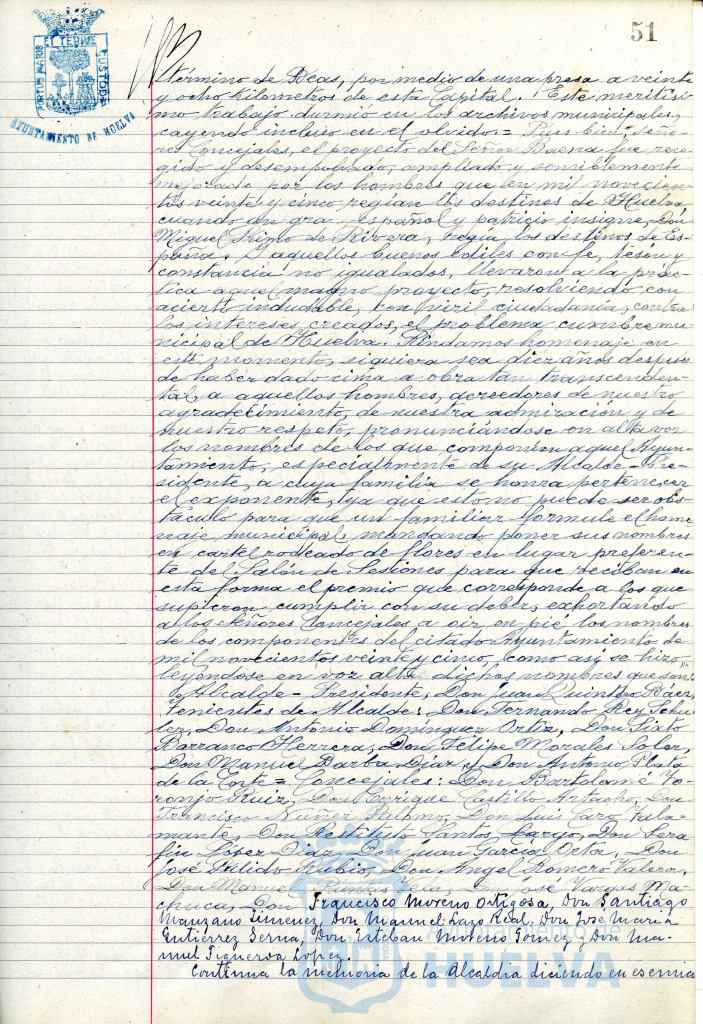 51
PORTUS MARIS ET TERRE CUSTODIA
AYUNTAMIENTO DE HUELVA
término de Beas, por medio de una presa a veinte
y ocho kilómetros de esta Capital. Este meritísi-
mo trabajo durmió en los archivos municipales,
cayendo incluso en el olvido = Pues bien, seño-
res Concejales, el proyecto del Señor Baena fue reco-
gido y desempolvado, ampliado y sensiblemente
mejorado por los hombres que en mil novecien-
tos veinte y cinco regían los destinos de Huelva
cuando un gran español y patricio insigne, Don
Miguel Primo de Rivera, regía los destinos de Es-
paña. Y aquellos buenos ediles con fe, tesón y
constancia no igualados, llevaron a la prác-
tica aquel magno proyecto, resolviendo con
acierto indudable, con viril ciudadanía, contra
los intereses creados, el problema cumbre mu-
nicipal de Huelva. Rindamos homenaje en
este momento, siquiera sea diez años después
de haber dado cima a obra tan transcenden-
tal, a aquellos hombres, acreedores de nuestro
agradecimiento, de nuestra admiración y de
nuestro respeto, pronunciándose en alta voz
los nombres de los que componían aquel Ayun-
tamiento, especialmente de su Alcalde-Pre-
sidente, a cuya familia se honra pertenecer
el exponente, ya que esto no puede ser obs-
táculo para que un familiar formule el home-
naje municipal, mandando poner sus nombres
en cartel rodeado de flores en lugar preferen-
te del Salón de Sesiones para que reciban en
esta forma el premio que corresponde a los que
supieron cumplir con su deber, exhortando
a los señores Concejales a oir en pié los nombres
de los componentes del citado Ayuntamiento de
mil novecientos veinte y cinco, como así se hizo
leyéndose en voz alta dichos nombres que son:
Alcalde-Presidente, Don Juan Quintero Báez,
Tenientes de Alcalde: Don Fernando Rey Schu-
ler, Don Antonio Domínguez Ortiz, Don Sixto
Barranco Herrera, Don Felipe Morales Soler,
Don Manuel Barba Díaz, y Don Antonio Plata
de la Corte = Concejales: Don Bartolomé To-
ronjo Ruiz, Don Enrique Castillo Artacho, Don
Francisco Núñez Palomo, Don Luis Caro Vala-
mante, Don Restituto Santos Largo, Don Sera-
fín López Díaz, Don Juan García Orta, Don
José Pulido Rubio, Don Angel Romero Valera,
Don Manuel Vela, Don José Vargas Ma-
chuca, Don Francisco Moreno Ortigosa, Don Santiago
Manzano Jimenez, Don Manuel Lazo Real, Don Jose María
Gutierrez Serna, Don Esteban Moreno Gomez, y Don Ma-
nuel Figueroa Lopez.
Continua la memoria de la Alcaldia diciendo en esencia
Ayuntamiento de
HUELVA